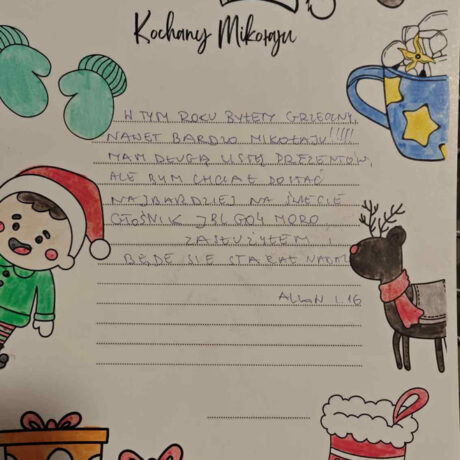 Kochany Mikołaju
W TYM ROKU BYŁEM GRZECZNY,
NAWET BARDZO MIKOŁAJU!!!!!
MAM DŁUGĄ LISTĘ PREZENTÓW,
ALE BYM CHCIAŁ DOSTAĆ
NAJBARDZIEJ NA ŚWIECIE
GŁOŚNIK JBL GO4 MORO
ZASŁUŻYŁEM I
BĘDĘ SIĘ STARAŁ NADAL
ALLAN L.16